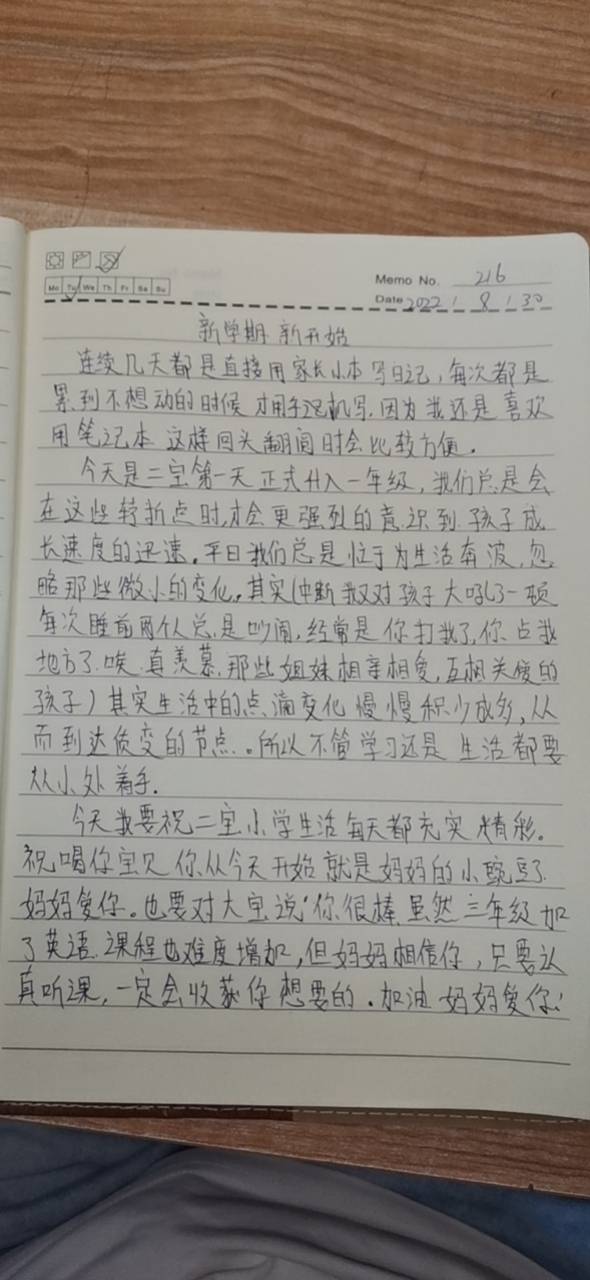 Memo No. 216
Mo Tu We Th Fr Sa Su
Date 2022 / 8 / 30
新学期 新开始
连续几天都是直接用家长小本写日记,每次都是
累到不想动的时候才用手记机写.因为我还是喜欢
用笔记本 这样回头翻阅时会比较方便.
今天是二宝第一天正式升入一年级,我们总是会
在这些转折点时才会更强烈的意识到孩子成
长速度的迅速.平日我们总是忙于为生活奔波,忽
略那些微小的变化.其实(中断 我又对孩子大吼了一顿
每次睡前两个人总是吵闹,经常是你打我了你占我
地方了.唉.真羡慕.那些姐妹相亲相爱,互相关爱的
孩子)其实生活中的点滴变化慢慢积少成多,从
而到达质变的节点.所以不管学习还是生活都要
从小处着手.
今天我要祝二宝小学生活每天都充实精彩.
祝 你宝贝 你从今天开始就是妈妈的小豌豆了
妈妈爱你.也要对大宝说'你很棒 虽然三年级加
了英语 课程也难度增加,但妈妈相信你,只要认
真听课,一定会收获你想要的.加油 妈妈爱你!